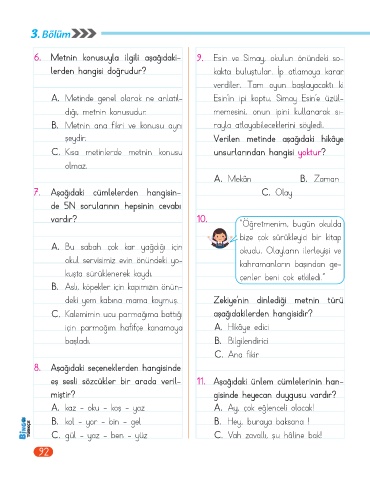 3. Bölüm
6. Metnin konusuyla ilgili aşağıdaki-
lerden hangisi doğrudur?
A. Metinde genel olarak ne anlatıl-
dığı, metnin konusudur.
B. Metnin ana fikri ve konusu aynı
şeydir.
C. Kısa metinlerde metnin konusu
olmaz.
7. Aşağıdaki cümlelerden hangisin-
de 5N sorularının hepsinin cevabı
vardır?
A. Bu sabah çok kar yağdığı için
okul servisimiz evin önündeki yo-
kuşta sürüklenerek kaydı.
B. Aslı, köpekler için kapımızın önün-
deki yem kabına mama koymuş.
C. Kalemimin ucu parmağıma battığı
için parmağım hafifçe kanamaya
başladı.
8. Aşağıdaki seçeneklerden hangisinde
eş sesli sözcükler bir arada veril-
miştir?
A. kaz - oku - koş - yaz
B. kol - yor - bin - gel
C. gül - yaz - ben - yüz
9. Esin ve Simay, okulun önündeki so-
kakta buluştular. İp atlamaya karar
verdiler. Tam oyun başlayacaktı ki
Esin'in ipi koptu. Simay Esin'e üzül-
memesini, onun ipini kullanarak sı-
rayla atlayabileceklerini söyledi.
Verilen metinde aşağıdaki hikâye
unsurlarından hangisi yoktur?
A. Mekân B. Zaman
C. Olay
10. "Öğretmenim, bugün okulda
bize çok sürükleyici bir kitap
okudu. Olayların ilerleyişi ve
kahramanların başından ge-
çenler beni çok etkiledi."
Zekiye'nin dinlediği metnin türü
aşağıdakilerden hangisidir?
A. Hikâye edici
B. Bilgilendirici
C. Ana fikir
11. Aşağıdaki ünlem cümlelerinin han-
gisinde heyecan duygusu vardır?
A. Ay, çok eğlenceli olacak!
B. Hey, buraya baksana !
C. Vah zavallı, şu hâline bak!
BİNGO
TÜRKÇE
92